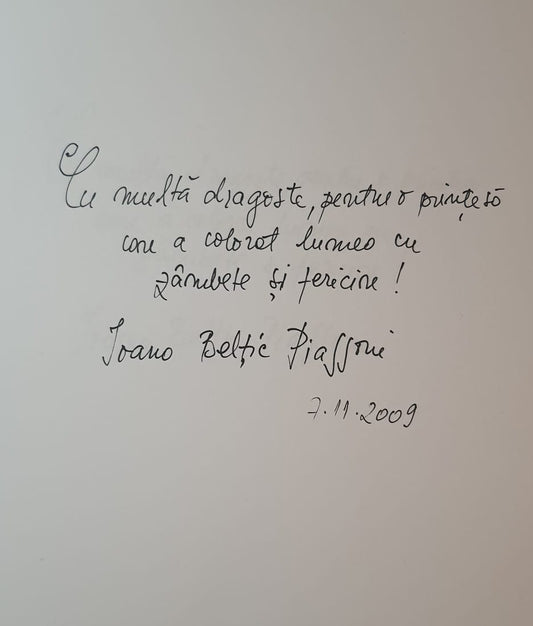 Cu multă dragoste, pentru o prințesă
care a colorat lumea cu
zâmbete și fericire!
Ioana Belțic Piassoni
7.11.2009